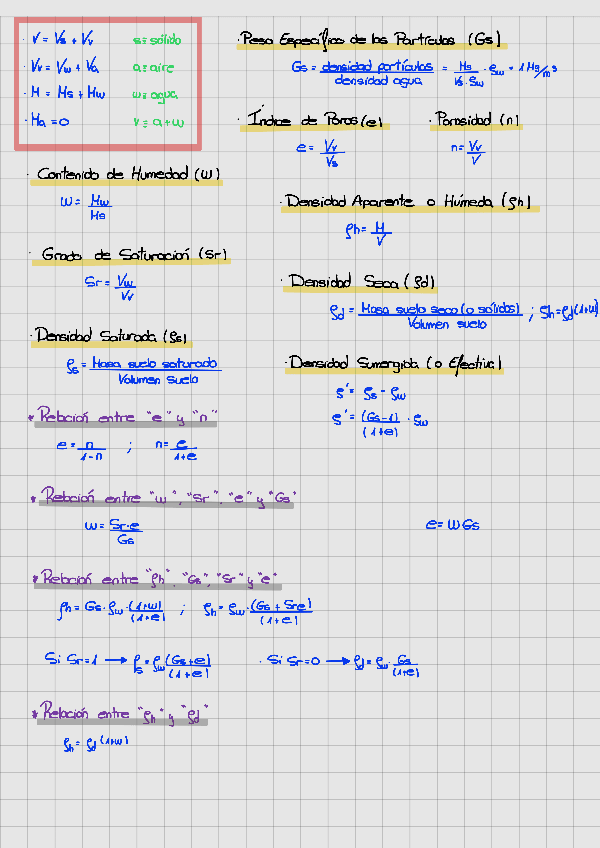 · V = Vs + Vv    s ≡ sólido
· Vv = Vw + Va    a ≡ aire
· M = Ms + Mw    w ≡ agua
· Ma = 0    v ≡ a + w
· Peso Específico de las Partículas (Gs)
Gs = densidad partículas / densidad agua = Ms / (Vs · ρw) · ρw = 1 Mg/m³
· Índice de Poros (e)    · Porosidad (n)
e = Vv / Vs    n = Vv / V
· Contenido de Humedad (w)
w = Mw / Ms
· Densidad Aparente o Húmeda (ρh)
ρh = M / V
· Grado de Saturación (Sr)
Sr = Vw / Vv
· Densidad Seca (ρd)
ρd = Masa suelo seco (o sólidos) / Volumen suelo ; ρh = ρd (1+w)
· Densidad Saturada (ρs)
ρs = Masa suelo saturado / Volumen suelo
· Densidad Sumergida (o Efectiva)
ρ' = ρs - ρw
ρ' = (Gs-1) / (1+e) · ρw
* Relación entre "e" y "n"
e = n / 1-n ; n = e / 1+e
* Relación entre "w", "Sr", "e" y "Gs"
w = Sr·e / Gs    e = w Gs
* Relación entre "ρh", "Gs", "Sr" y "e"
ρh = Gs · ρw · (1+w) / (1+e) ; ρh = ρw · (Gs + Sr e) / (1+e)
· Si Sr=1 → ρs = ρw (Gs+e) / (1+e)    · Si Sr=0 → ρd = ρw · Gs / (1+e)
* Relación entre "ρh" y "ρd"
ρh = ρd (1+w)